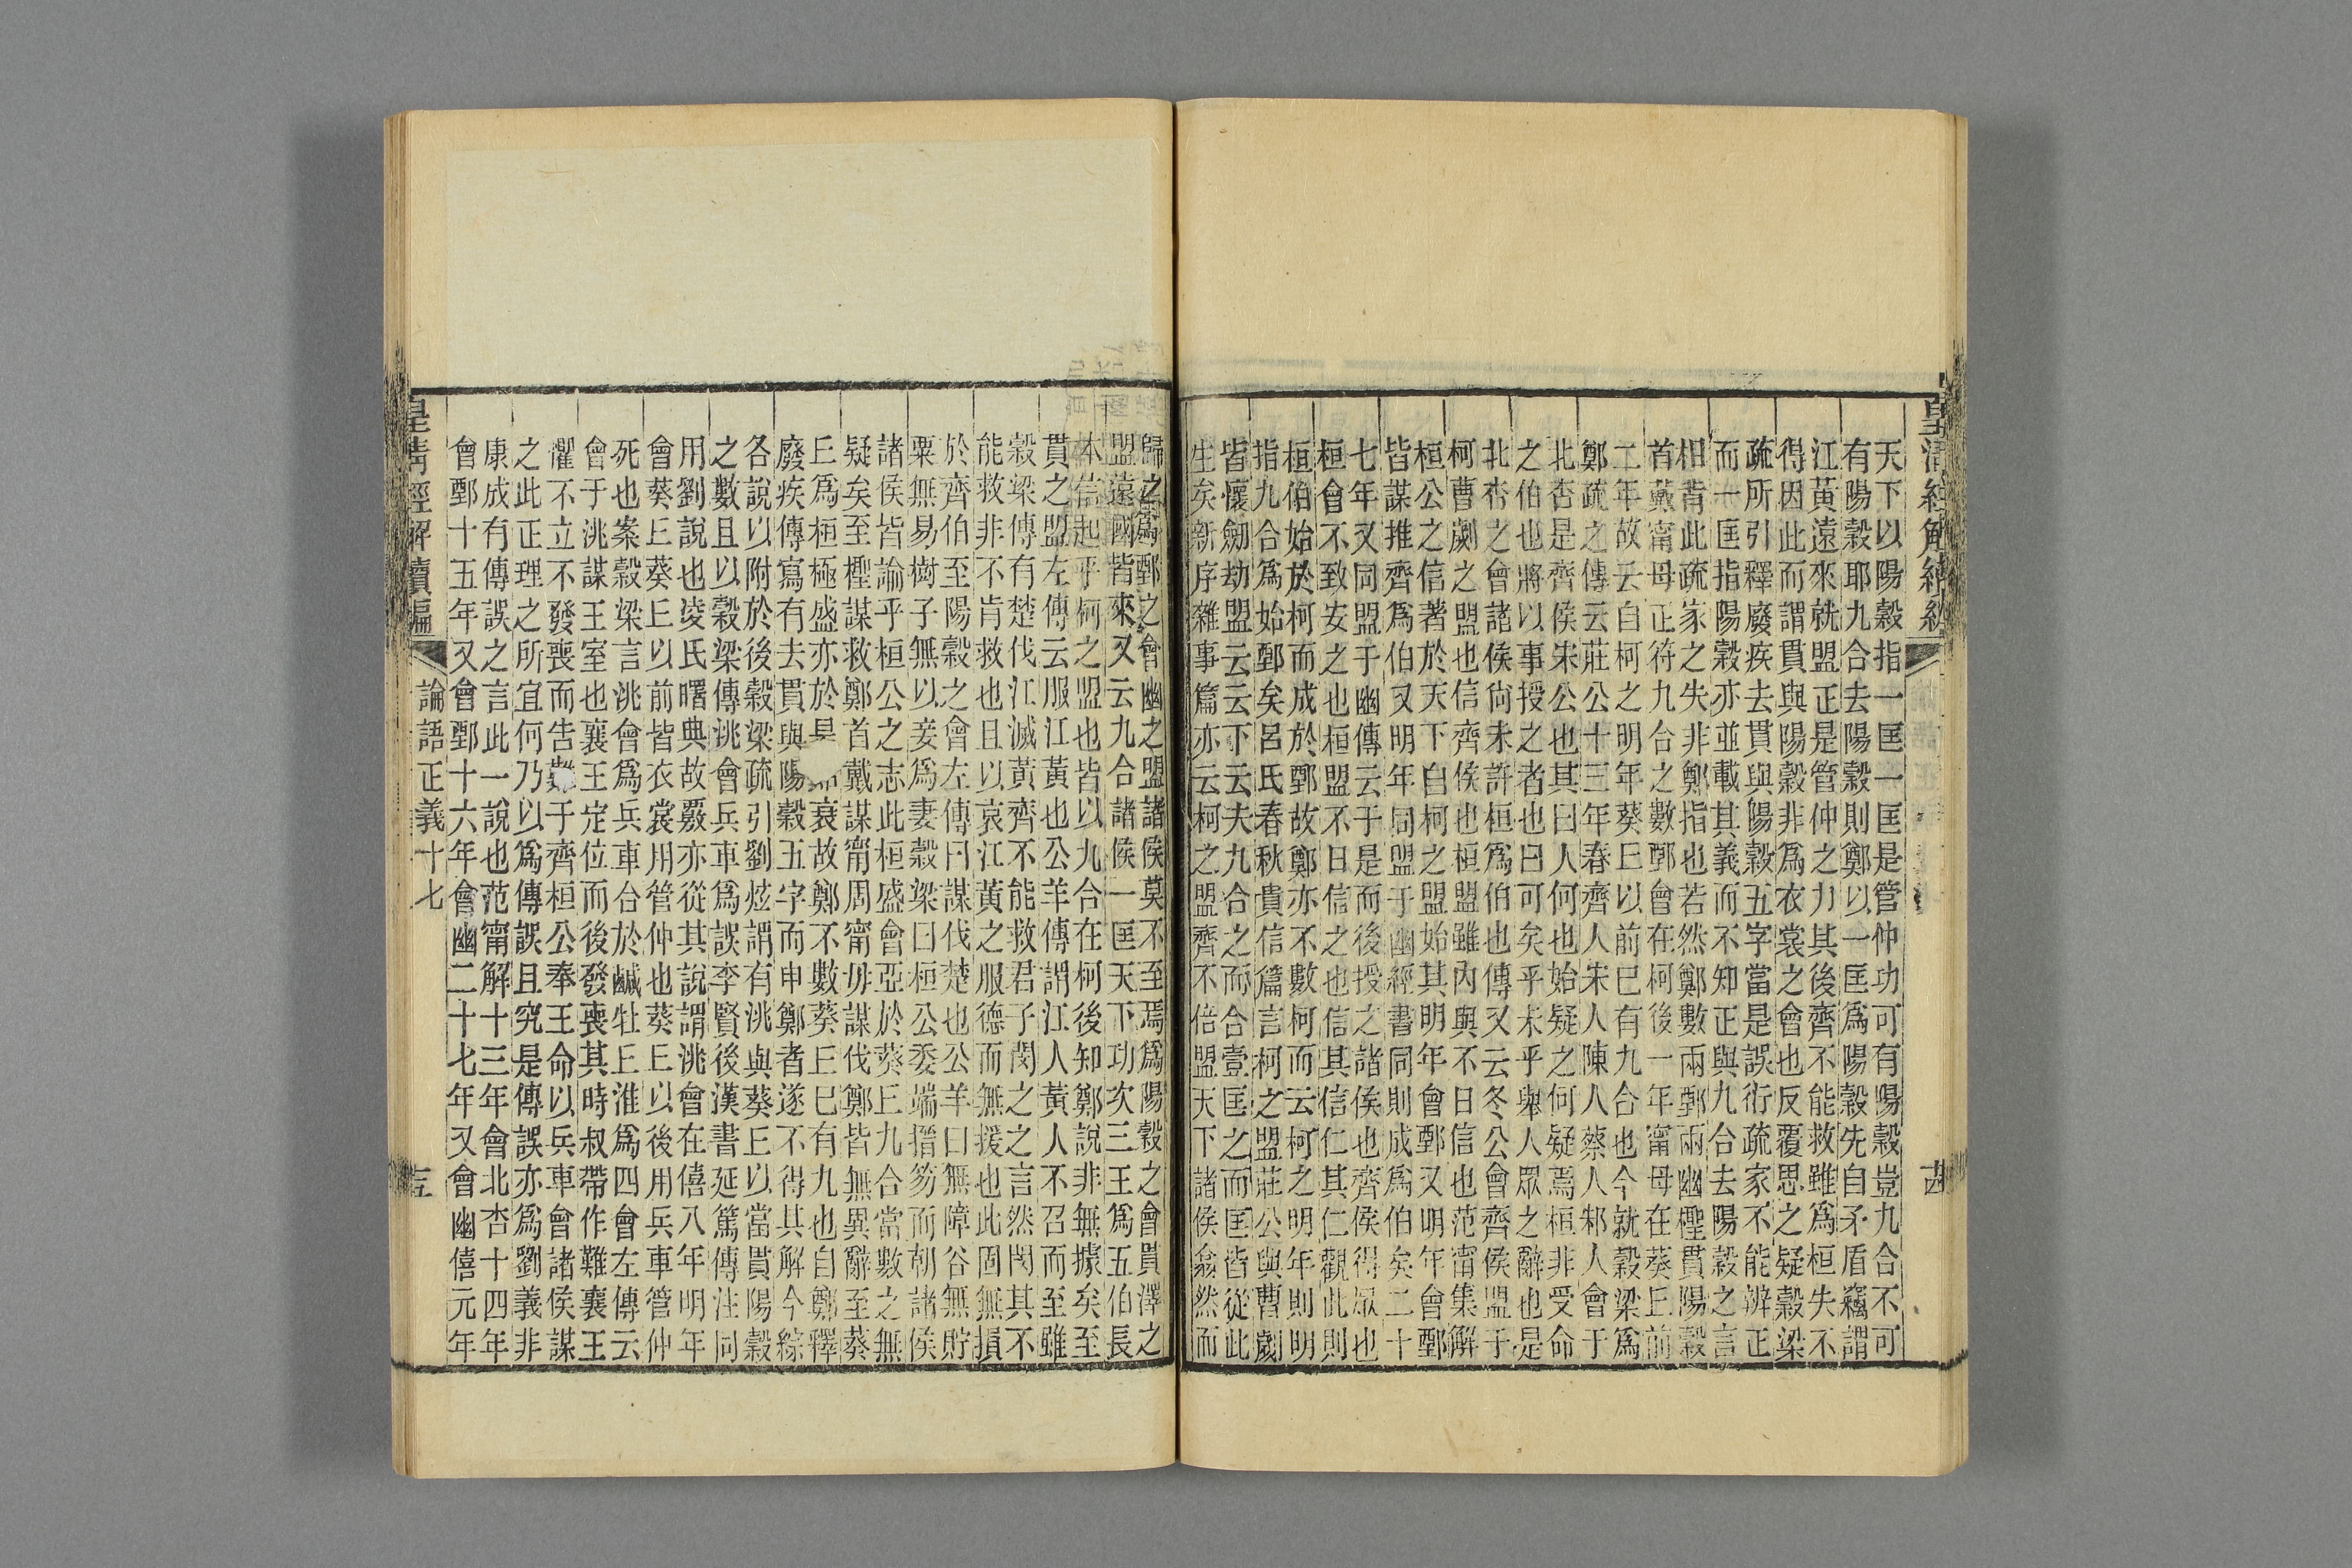 皇清經解續編
天下以陽穀指一匡一匡是管仲功可有陽穀豈九合不可
有陽穀耶九合去陽穀則鄭以一匡爲陽穀先自矛盾竊謂
江黃遠來就盟正是管仲之力其後齊不能救雖爲桓失不
得因此而謂貫與陽穀非爲衣裳之會也反覆思之疑穀梁
疏所引釋廢疾去貫與陽穀五字當是誤衍疏家不能辨正
而一匡指陽穀亦並載其義而不知正與九合去陽穀之言
相背此疏家之失非鄭指也若然鄭數兩鄄兩幽檉貫陽穀
首戴甯母正符九合之數鄄會在柯後一年甯母在葵丘前
二年故云自柯之明年葵丘以前巳有九合也今就穀梁爲
鄭疏之傳云莊公十三年春齊人宋人陳人蔡人邾人會于
北杏是齊侯宋公也其曰人何也始疑之何疑焉桓非受命
之伯也將以事授之者也曰可矣乎未乎舉人眾之辭也是
北杏之會諸侯尙未許桓爲伯也傳又云冬公會齊侯盟于
柯曹劌之盟也信齊侯也桓盟雖內與不日信也范甯集解
桓公之信著於天下自柯之盟始其明年會鄄又明年會鄄
皆謀推齊爲伯又明年同盟于幽經書同則成爲伯矣二十
七年又同盟于幽傳云于是而後授之諸侯也齊侯得眾也
桓會不致安之也桓盟不日信之也信其信仁其仁觀此則
桓伯始於柯而成於鄄故鄭亦不數柯而云柯之明年則明
指九合爲始鄄矣呂氏春秋貴信篇言柯之盟莊公與曹劌
皆懷劒劫盟云云下云夫九合之而合壹匡之而匡皆從此
生矣新序雜事篇亦云柯之盟齊不倍盟天下諸侯翕然而
歸之爲鄄之會幽之盟諸侯莫不至焉爲陽穀之會貫澤之
盟遠國皆來又云九合諸侯一匡天下功次三王爲五伯長
本信起乎柯之盟也皆以九合在柯後知鄭說非無據矣至
貫之盟左傳云服江黃也公羊傳謂江人黃人不召而至雖
穀梁傳有楚伐江滅黃齊不能救君子閔之之言然閔其不
能救非不肯救也且以哀江黃之服德而無援也此固無損
於齊伯至陽穀之會左傳曰謀伐楚也公羊曰無障谷無貯
粟無易樹子無以妾爲妻穀梁曰桓公委端搢笏而朝諸侯
諸侯皆諭乎桓公之志此桓盛會亞於葵丘九合當數之無
疑矣至檉謀救鄭首戴謀甯周甯毋謀伐鄭皆無異辭至葵
丘爲桓極盛亦於是 衰故鄭不數葵丘巳有九也自鄭釋
廢疾傳寫有去貫與陽穀五字而申鄭者遂不得其解今綜
各說以附於後穀梁疏引劉炫謂有洮與葵丘以當貫陽穀
之數且以穀梁傳洮會兵車爲誤李賢後漢書延篤傳注同
用劉說也凌氏曙典故覈亦從其說謂洮會在僖八年明年
會葵丘葵丘以前皆衣裳用管仲也葵丘以後用兵車管仲
死也案穀梁言洮會爲兵車合於鹹牡丘淮爲四會左傳云
會于洮謀王室也襄王定位而後發喪其時叔帶作難襄王
懼不立不發喪而吿難于齊桓公奉王命以兵車會諸侯謀
之此正理之所宜何乃以爲傳誤且究是傳誤亦爲劉義非
康成有傳誤之言此一說也范甯解十三年會北杏十四年
會鄄十五年又會鄄十六年會幽二十七年又會幽僖元年
皇淸經解續編
論語正義十七